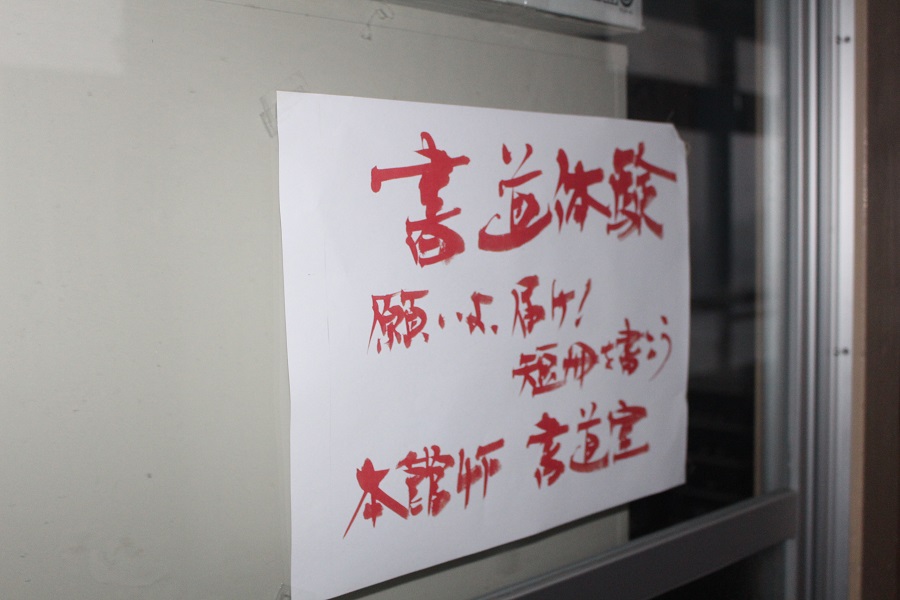 書道体験
願いよ、届け!
短冊を書こう
本館4F 書道室